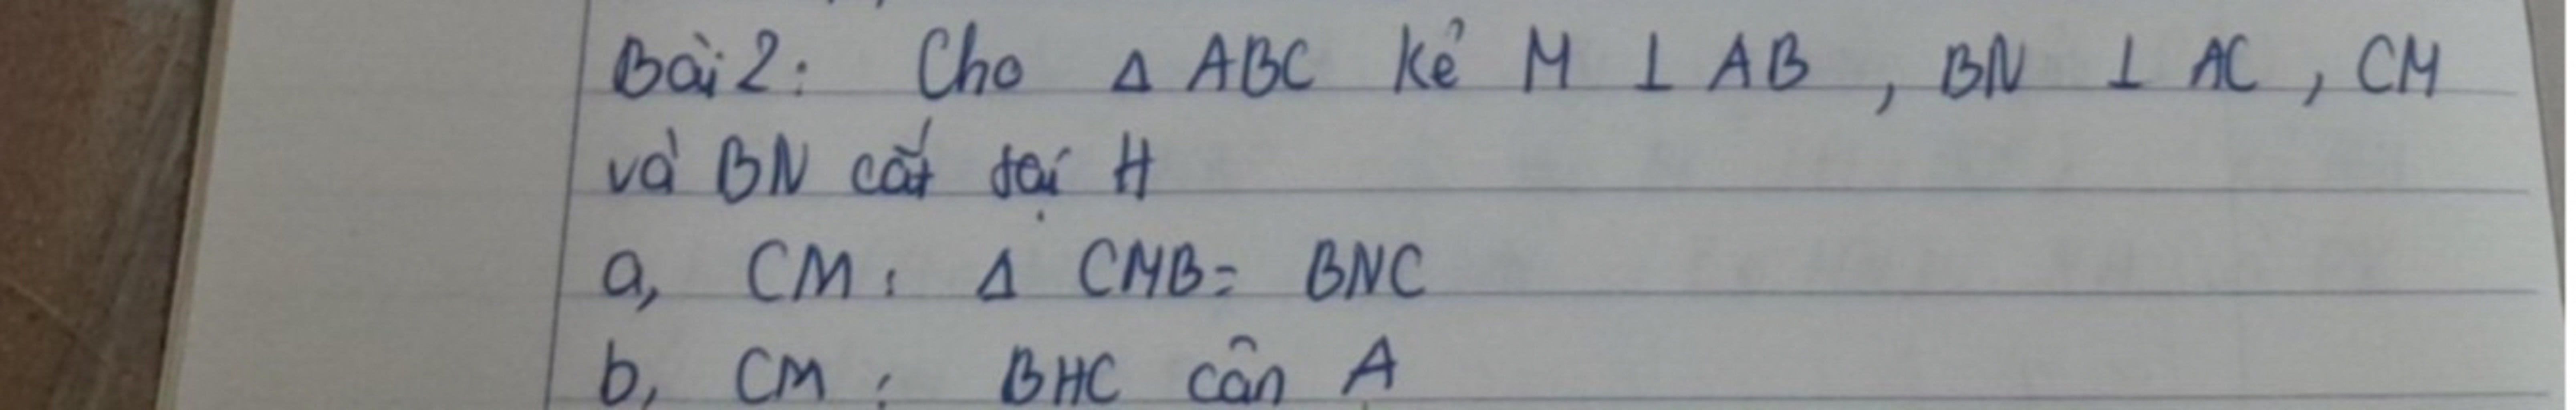 Bài 2: Cho Δ ABC kẻ M ⊥ AB, BN ⊥ AC, CM
và BN cắt tại H
a, CM: Δ CMB = BNC
b, CM: BHC cân A